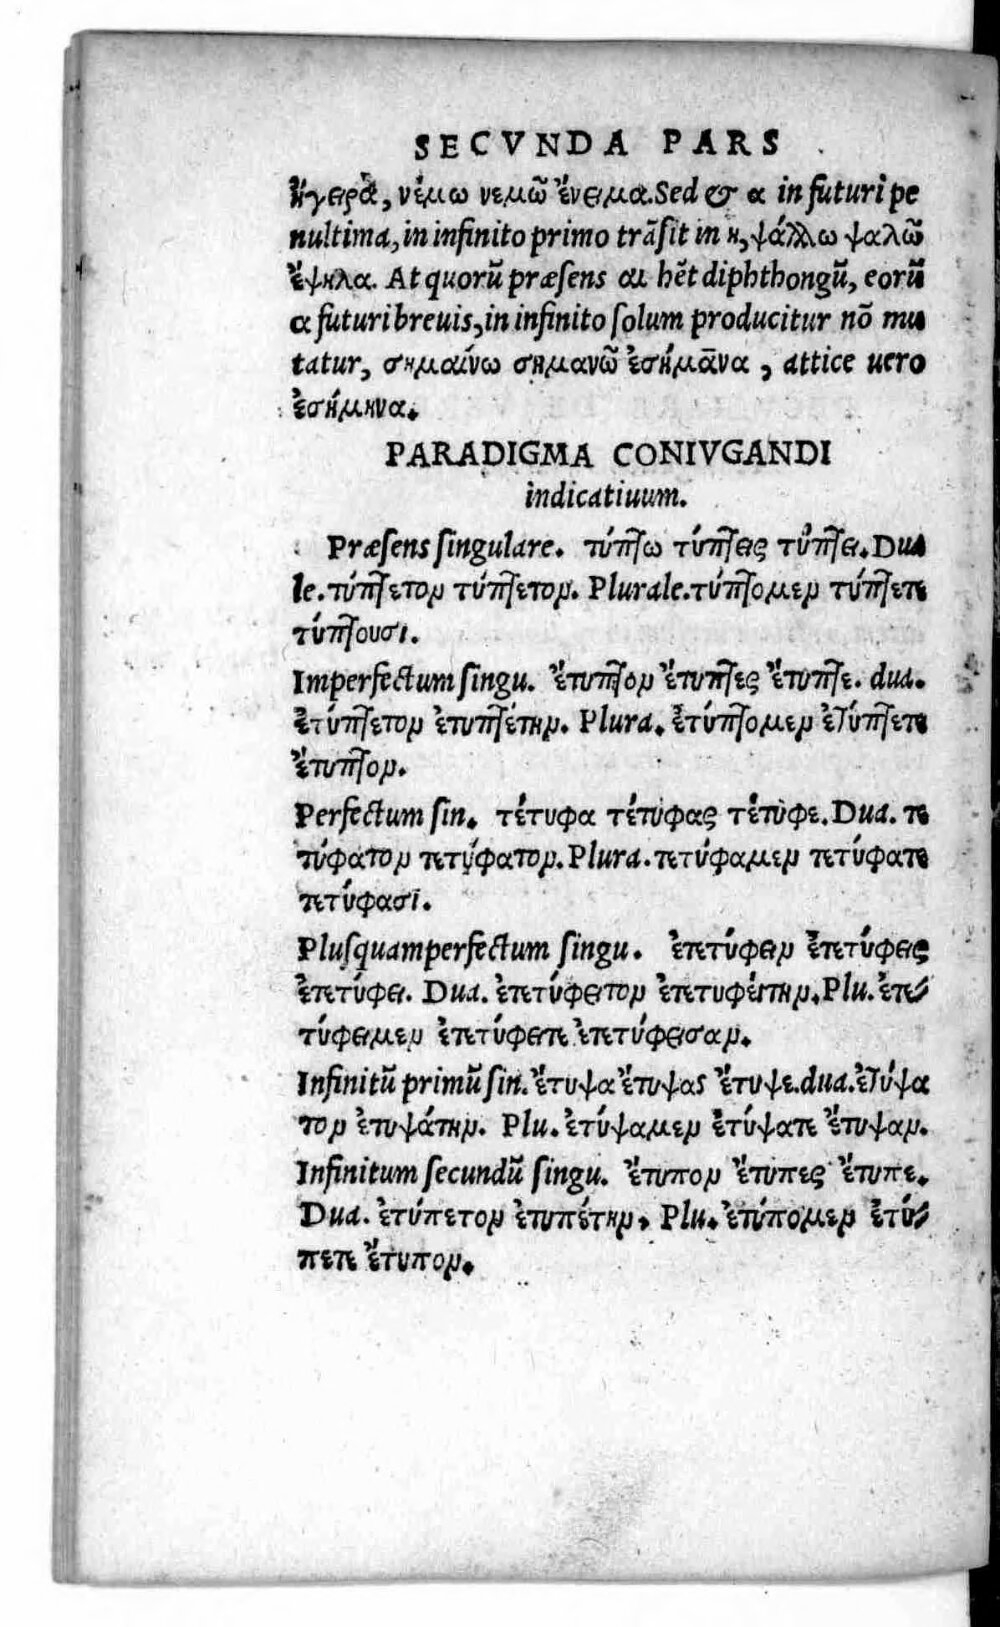 SECVNDA PARS
ἤγειρα, νέμω νεμῶ ἔνειμα. Sed & α in futuri pe
nultima, in infinito primo trãsit in η, ψάλλω ψαλῶ
ἔψηλα. At quorũ præsens αι hẽt diphthongũ, eorũ
α futuri breuis, in infinito solum producitur nõ mu
tatur, σημαίνω σημανῶ ἐσήμᾱνα, attice uero
ἐσήμηνα.
PARADIGMA CONIVGANDI
indicatiuum.
Præsens singulare. τύπτω τύπτεις τύπτει. Dua
le. τύπτετον τύπτετον. Plurale. τύπτομεν τύπτετε
τύπτουσι.
Imperfectum singu. ἔτυπτον ἔτυπτες ἔτυπτε. dua.
ἐτύπτετον ἐτυπτέτην. Plura. ἐτύπτομεν ἐτύπτετε
ἔτυπτον.
Perfectum sin. τέτυφα τέτυφας τέτυφε. Dua. τε
τύφατον τετύφατον. Plura. τετύφαμεν τετύφατε
τετύφασι.
Plusquamperfectum singu. ἐτετύφειν ἐτετύφεις
ἐτετύφει. Dua. ἐτετύφειτον ἐτετυφείτην. Plu. ἐτε-
τύφειμεν ἐτετύφειτε ἐτετύφεισαν.
Infinitũ primũ sin. ἔτυψα ἔτυψας ἔτυψε. dua. ἐτύψα
τον ἐτυψάτην. Plu. ἐτύψαμεν ἐτύψατε ἔτυψαν.
Infinitum secundũ singu. ἔτυπον ἔτυπες ἔτυπε.
Dua. ἐτύπετον ἐτυπέτην. Plu. ἐτύπομεν ἐτύ-
πετε ἔτυπον.